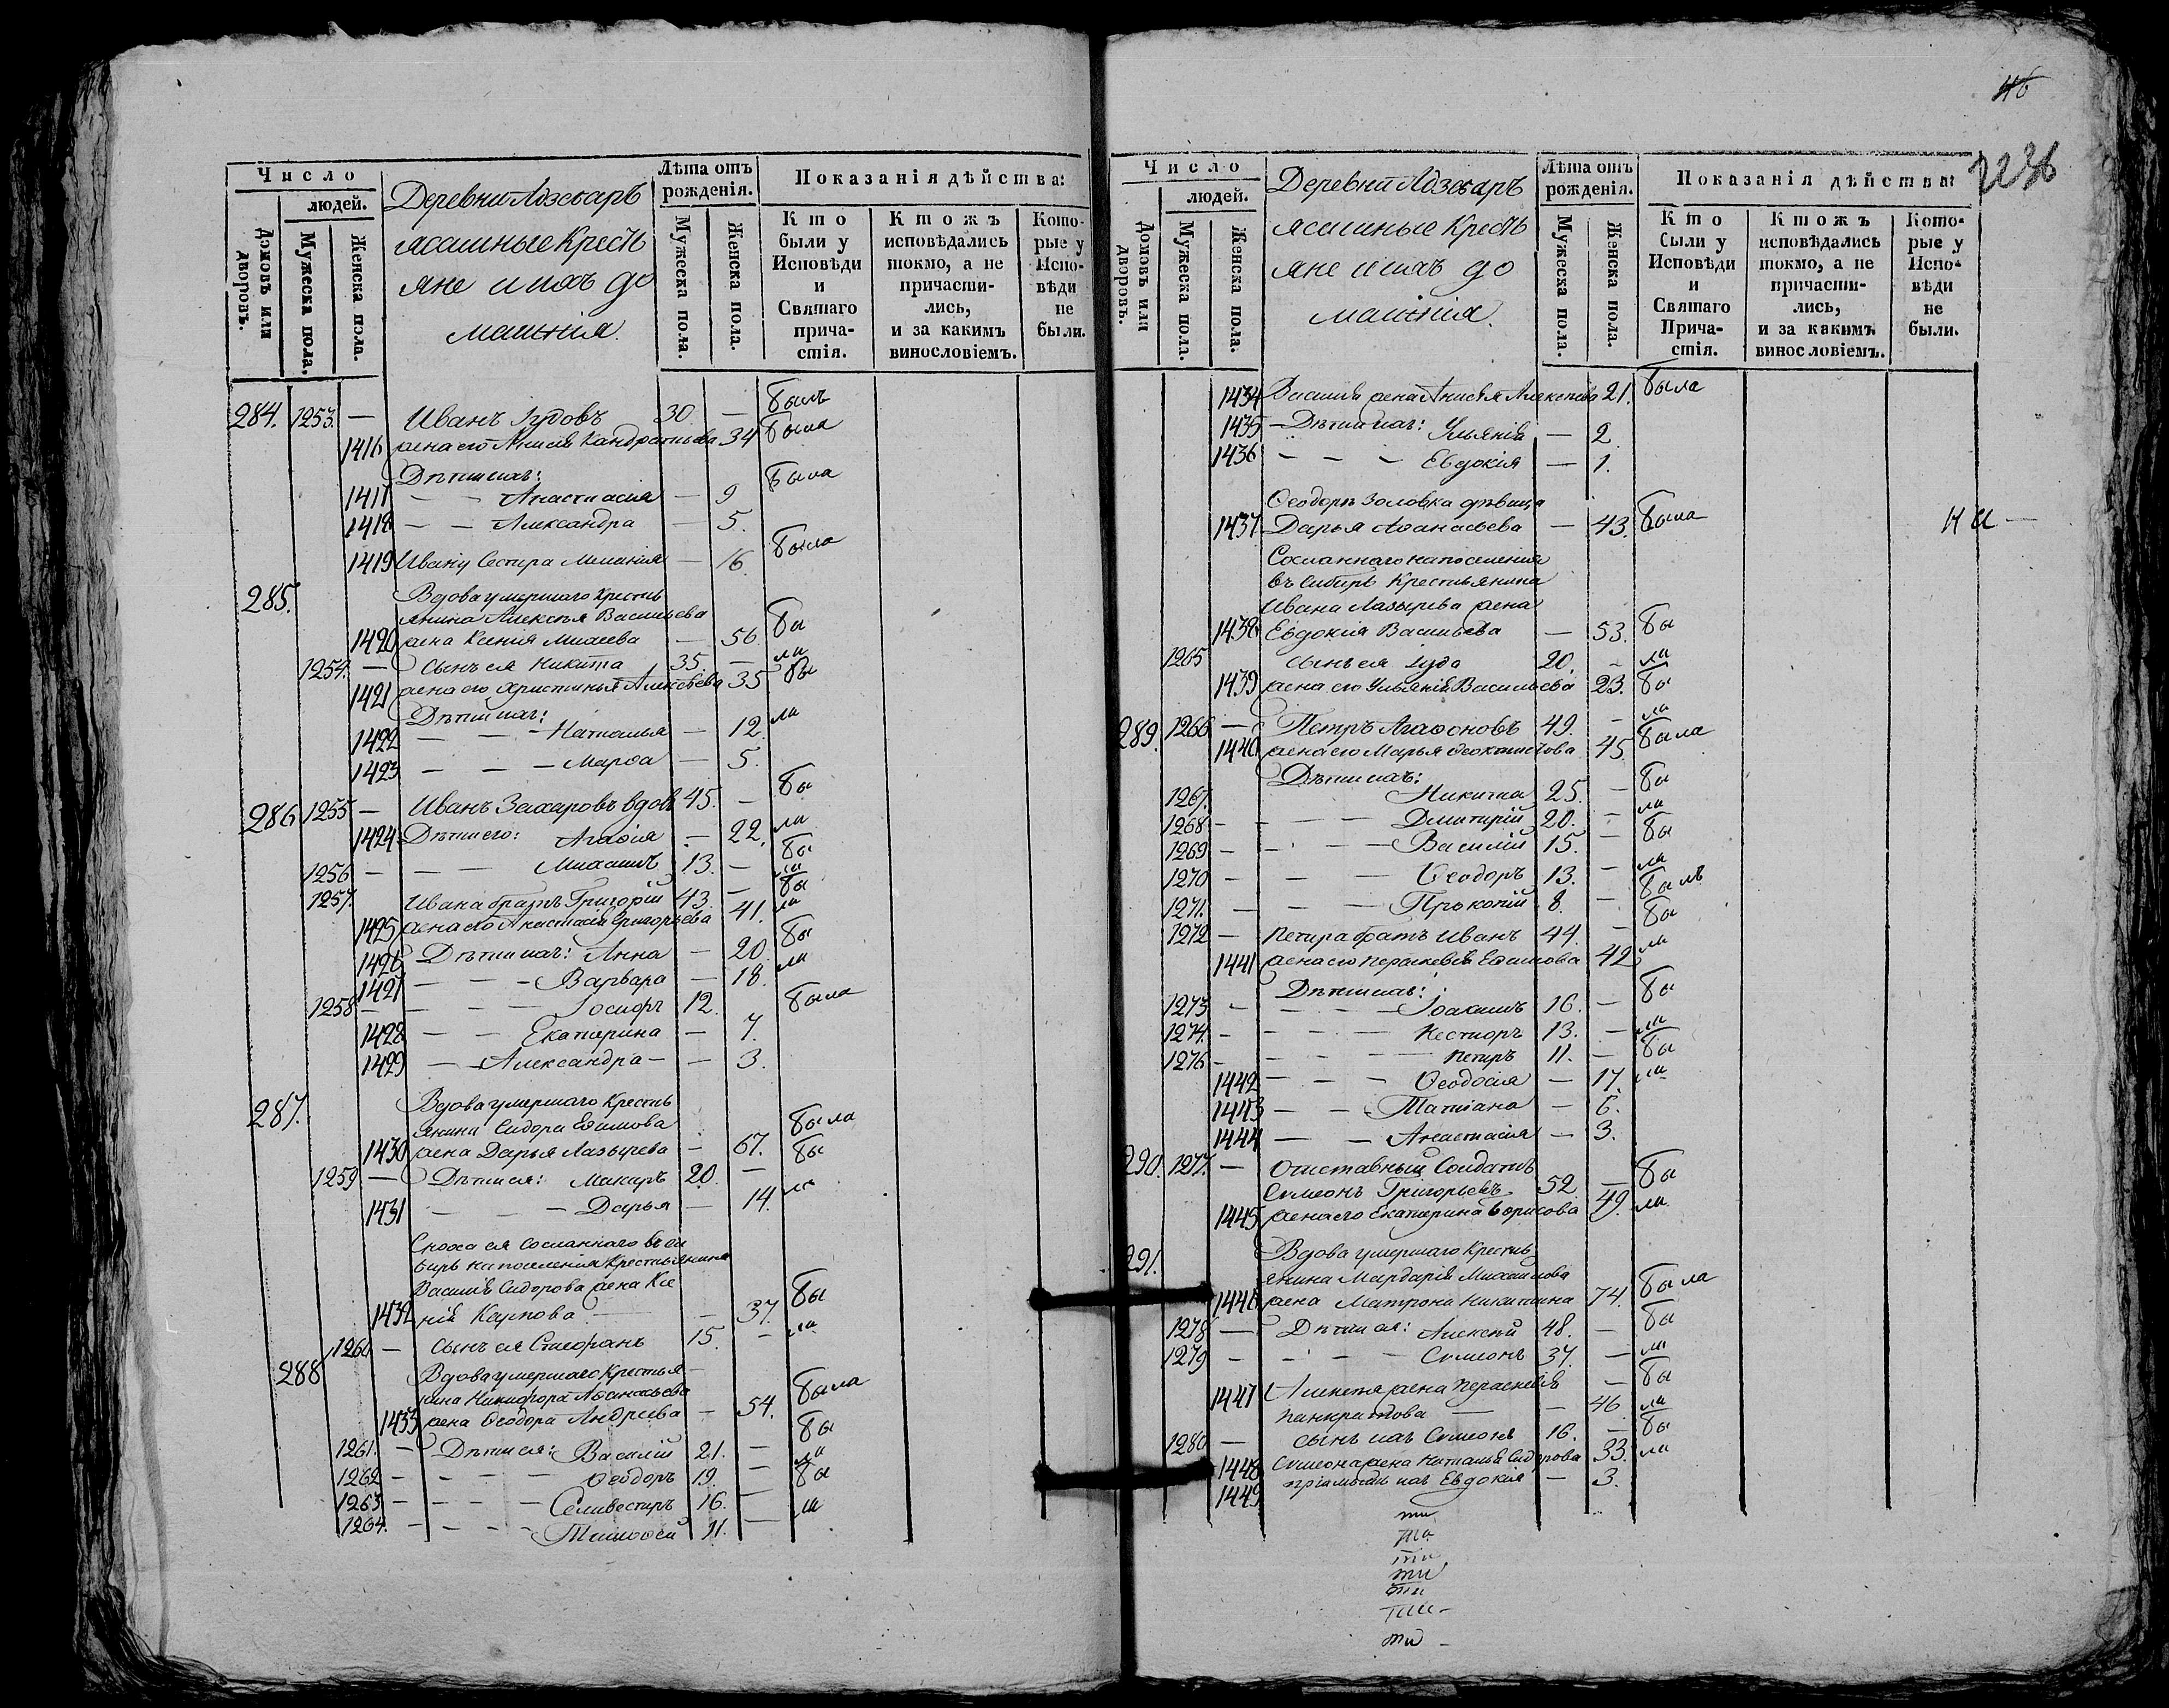 Число
людей.
Домовъ или дворовъ.
Мужеска пола.
Женска пола.
Деревни
ясашные Кресть
яне и ихъ до
машнія.
Лѣта отъ рожденія.
Мужеска пола.
Женска пола.
Показанія дѣйства:
Кто были у Исповѣди и Святаго прича-стія.
Ктожъ исповѣдались токмо, а не причасти-лись, и за какимъ винословіемъ.
Кото-рые у Испо-вѣди не были.
284. 1253. — Иванъ Іудовъ 30. — былъ
1416 жена его Кандратьева 34 была
Дѣти ихъ:
1417 — — Анастасия — 9 была
1418 — — Александра — 5.
1419 Ивану Сестра Меланія — 16. была
285. Вдова умершаго кресть
янина Алексѣя Васильева
1420 жена Ксенія Михеева — 56. бы
1254. — сынъ ея Никита 35. — ла
1421 жена его Христинья Алексѣева 35 бы
Дѣти ихъ:
1422 — — Наталья — 12. ла
1423 — — — Марѳа — 5.
286 1255 — Иванъ Захаровъ вдовъ 45. — бы
1424 Дѣти его: Агаѳія — 22. ла
1256 — — — Михаилъ 13. — бы
1257. Ивана братъ Григорій 43. — ла бы
1425 жена его Анастасія Григорьева 41. ла
1426 Дѣти ихъ: Анна — 20. бы
1427 — — — Варвара — 18. ла
1258 — — — Іосифъ 12. была
1428 — — Екатерина — 7.
1429 — — Александра — — 3.
287. Вдова умершаго Кресть
янина Сидора Еѳимова
1430 жена Дарья Лазырева — 67. была
1259 — Дѣти ея: Макаръ 20. — бы
1431 — — — Дарья — 14. ла
Сноха ея Сосланнаго въ си
бирь на поселенія Крестьянина
Василія Сидорова жена Ксе
1432 нія Карпова — — 37. бы
1260 — сынъ ея Стефанъ 15. — ла
288 Вдова умершаго Крестья
нина Никифора Аѳанасьева
1433 жена Ѳеодора Андреева — 54. была
1261. — Дѣти ея: Василій 21. — бы
1262 — — — — Ѳеодоръ 19. — ла
1263 — — — — Селивестръ 16. — бы
1264. — — — — Тимоѳей 11. — ла
46
Число
людей.
Домовъ или дворовъ.
Мужеска пола.
Женска пола.
Деревни
ясашные Кресть
яне и ихъ до
машнія.
Лѣта отъ рожденія.
Мужеска пола.
Женска пола.
Показанія дѣйства:
Кто были у Исповѣди и Святаго Прича-стія.
Ктожъ исповѣдались токмо, а не причасти-лись, и за какимъ винословіемъ.
Кото-рые у Испо-вѣди не были.
1434 Василія жена Анисья Алексѣева 21. была
1435 — Дѣти ихъ: Ульянія — 2.
1436 — — — Евдокія — 1.
Ѳеодорѣ золовка дѣвица
1437 Дарья Аѳанасьева — 43. была
Сосланнаго на поселенія
въ Сибирь Крестьянина
Ивана Лазырева жена
1438 Евдокія Васильева — 53. бы
1265 сынъ ея Іуда 20. — ла
1439 жена его Ульянія Васильева 23. бы
289. 1266 — Петръ Агаѳоновъ 49. — ла
1440 жена его Марья 45. была
Дѣти ихъ:
1267. Никита 25. — бы
1268 — — — Дмитрій 20. — ла
1269 — — — Василій 15. — бы
1270 — — Ѳеодоръ 13. — ла
1271. — — — Прокопій 8. — былъ
1272 — Петра братъ Иванъ 44. — бы
1441 жена его Перасковія Еѳимова 42 ла
Дѣти ихъ:
1273 — — — — Іоакимъ 16. — бы
1274. — — — — Несторъ 13. — ла
1276 — — — — Петръ 11. — бы
1442 — — — Ѳеодосія — 17. ла
1443 — — Татіана — 6.
1444 — — Анастасія — 3.
290. 1277. — Отставный Солдатъ
Симеонъ Григорьевъ 52 — бы
1445 жена его Екатерина Борисова 49. ла
291. Вдова умершаго Кресть
янина Мардарія Михайлова
1446 жена Матрона Никитина 74. была
1278 — Дѣти ея: Алексѣй 48. — бы
1279 — — — Симеонъ 37. — ла
1447 Алексѣя жена Перасковія — бы
Панкратова — — 46 ла
1280 — сынъ ихъ Симеонъ 16. — бы
1448 Симеона жена Наталья Сидорова 33. ла
1449 ихъ Евдокія — 3.